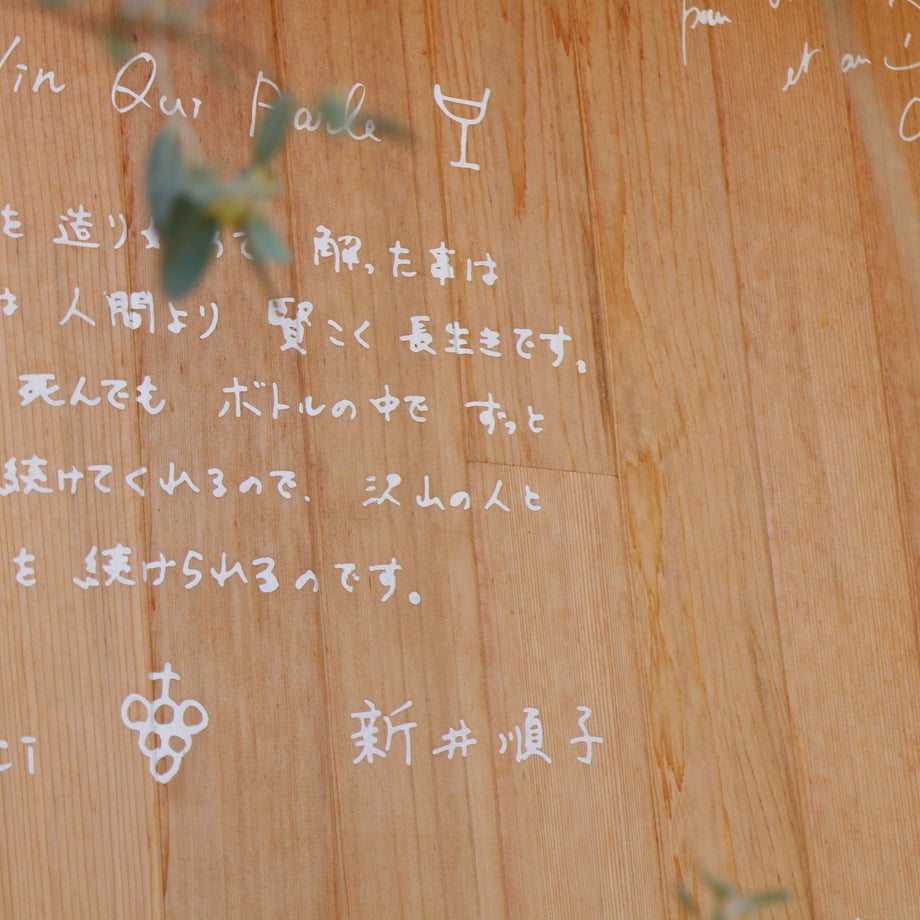 Vin Qui Parle
pour
et au
を 造り って 解った事は
は 人間より 賢こく 長生きです。
死んでも ボトルの中で ずっと
続けてくれるので、 沢山の人と
を 続けられるのです。
ci
新井順子